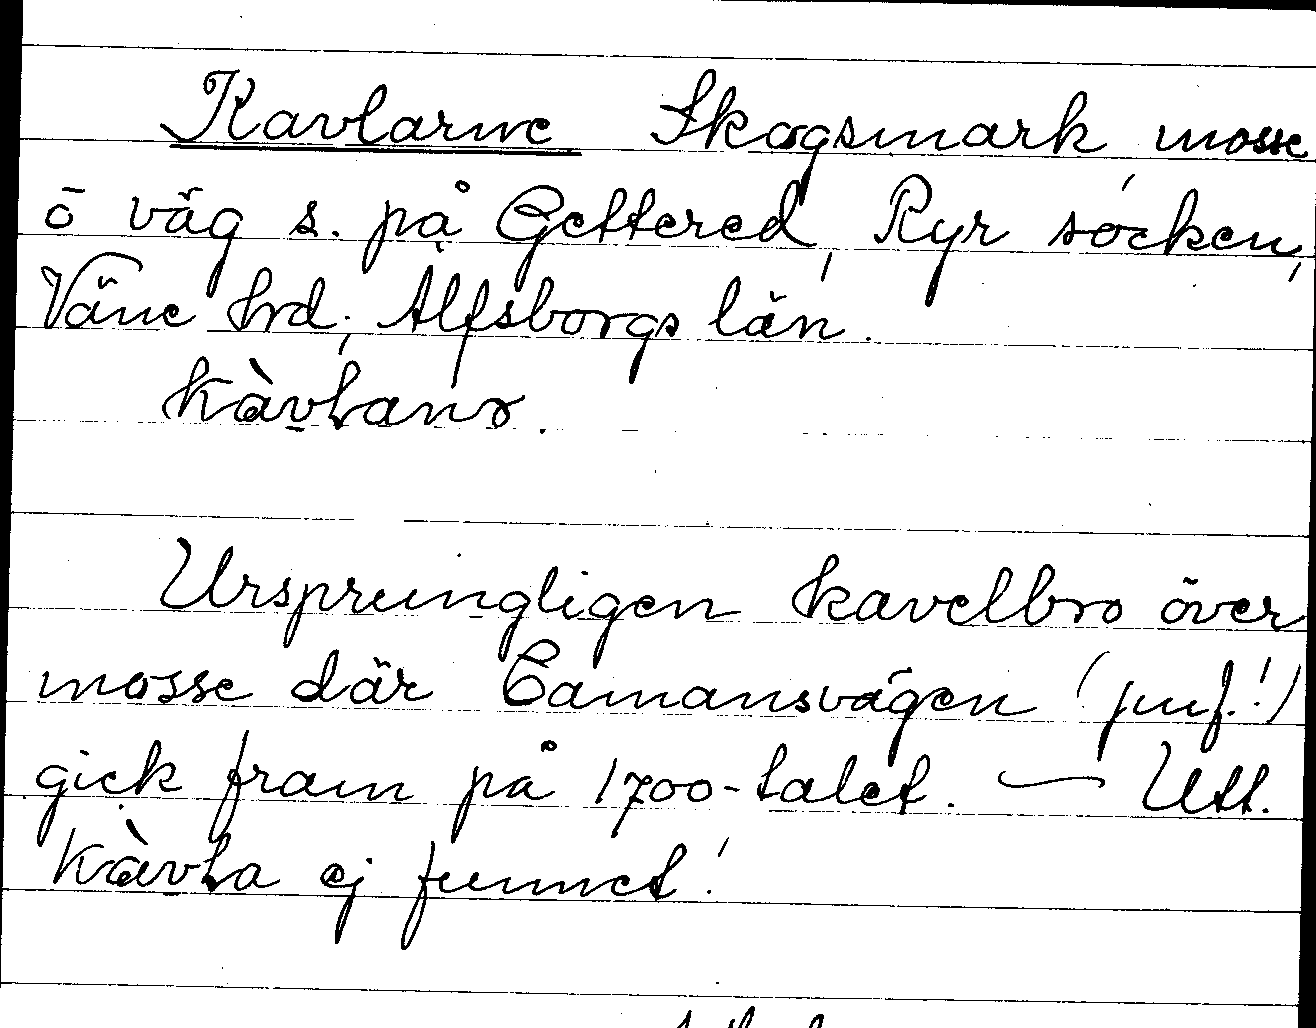 Kavlarne Skogsmark, mosse
o väg s. på Gettered, Ryr socken,
Väne hrd, Älfsborgs län.
Ursprungligen kavelbro över
mosse där Eamansvägen (jmf.!)
gick fram på 1700-talet. — Utt.
kàvla ej funnet!